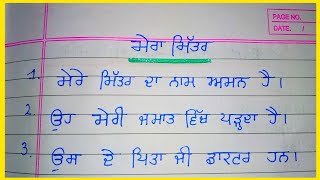 PAGE NO.
DATE: /
ਮੇਰਾ ਮਿੱਤਰ
1. ਮੇਰੇ ਮਿੱਤਰ ਦਾ ਨਾਮ ਅਮਨ ਹੈ।
2. ਉਹ ਮੇਰੀ ਜਮਾਤ ਵਿੱਚ ਪੜ੍ਹਦਾ ਹੈ।
3. ਉਸ ਦੇ ਪਿਤਾ ਜੀ ਡਾਕਟਰ ਹਨ।